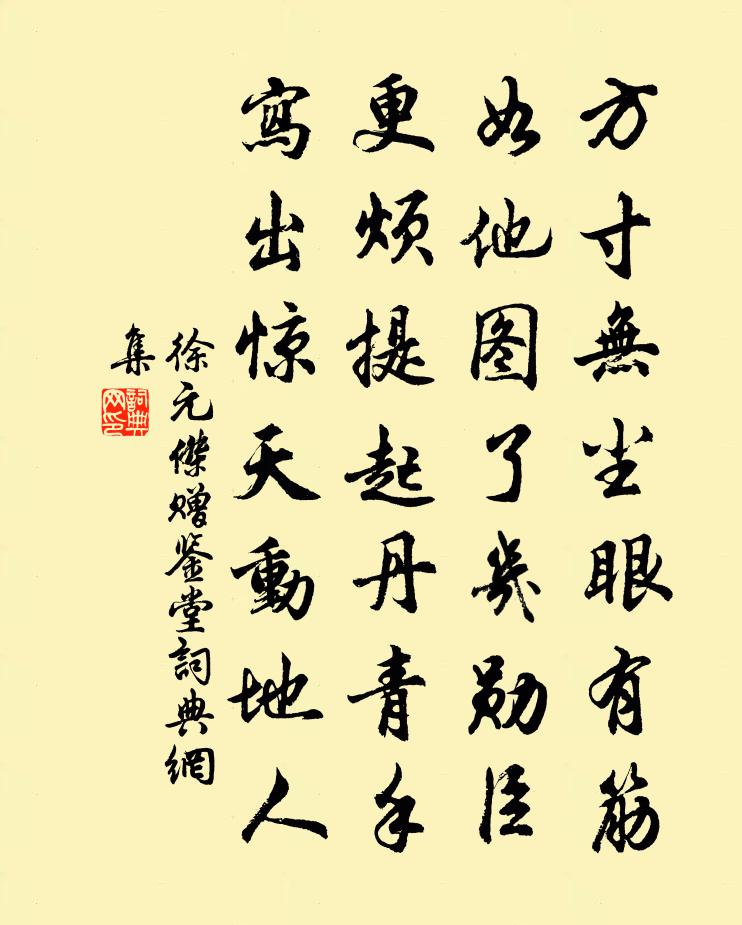 方寸無尘眼有筋
如他图了幾勛臣
更烦提起丹青手
寫出惊天動地人
徐元傑赠鉴堂詞典網
集
詞典网印